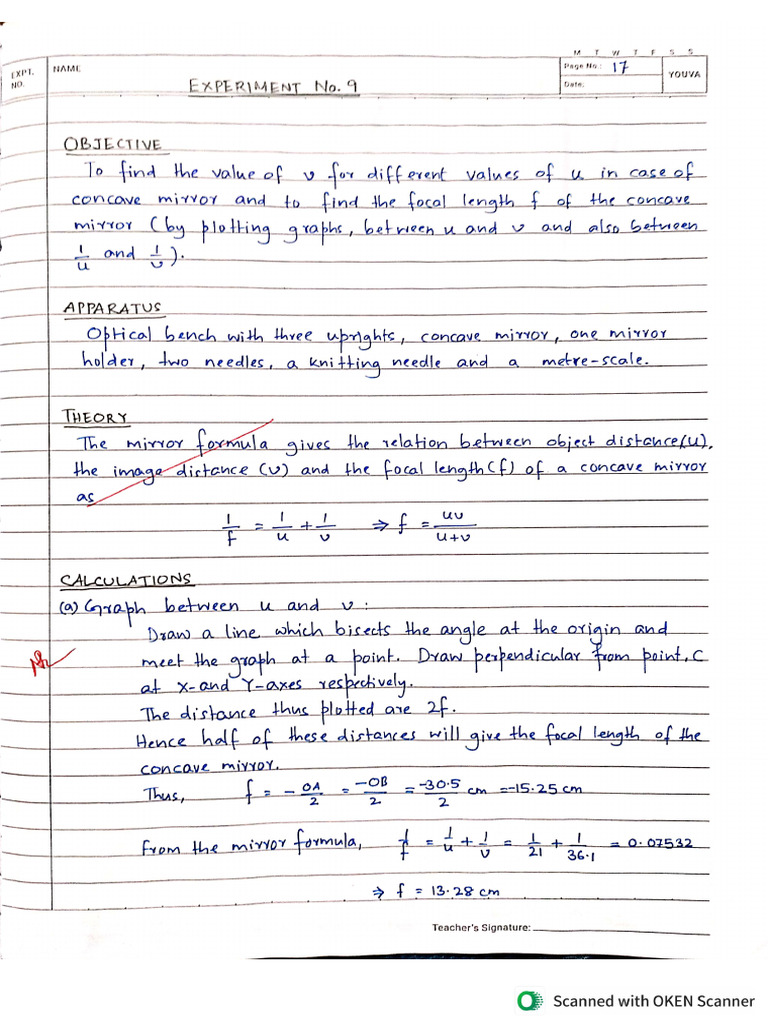 M T W T F S S
EXPT. NO.
NAME
Page No.: 17
Date:
YOUVA
EXPERIMENT No. 9
OBJECTIVE
To find the value of v for different values of u in case of
concave mirror and to find the focal length f of the concave
mirror (by plotting graphs, between u and v and also between
1/u and 1/v).
APPARATUS
Optical bench with three uprights, concave mirror, one mirror
holder, two needles, a knitting needle and a metre-scale.
THEORY
The mirror formula gives the relation between object distance(u),
the image distance (v) and the focal length(f) of a concave mirror
as
1/f = 1/u + 1/v ⇒ f = uv/u+v
CALCULATIONS
(a) Graph between u and v :
Draw a line which bisects the angle at the origin and
meet the graph at a point. Draw perpendicular from point, C
at X-and Y-axes respectively.
The distance thus plotted are 2f.
Hence half of these distances will give the focal length of the
concave mirror.
Thus, f = - OA/2 = -OB/2 = -30.5/2 cm = -15.25 cm
From the mirror formula, 1/f = 1/u + 1/v = 1/21 + 1/36.1 = 0.07532
⇒ f = 13.28 cm
Teacher's Signature:
Scanned with OKEN Scanner